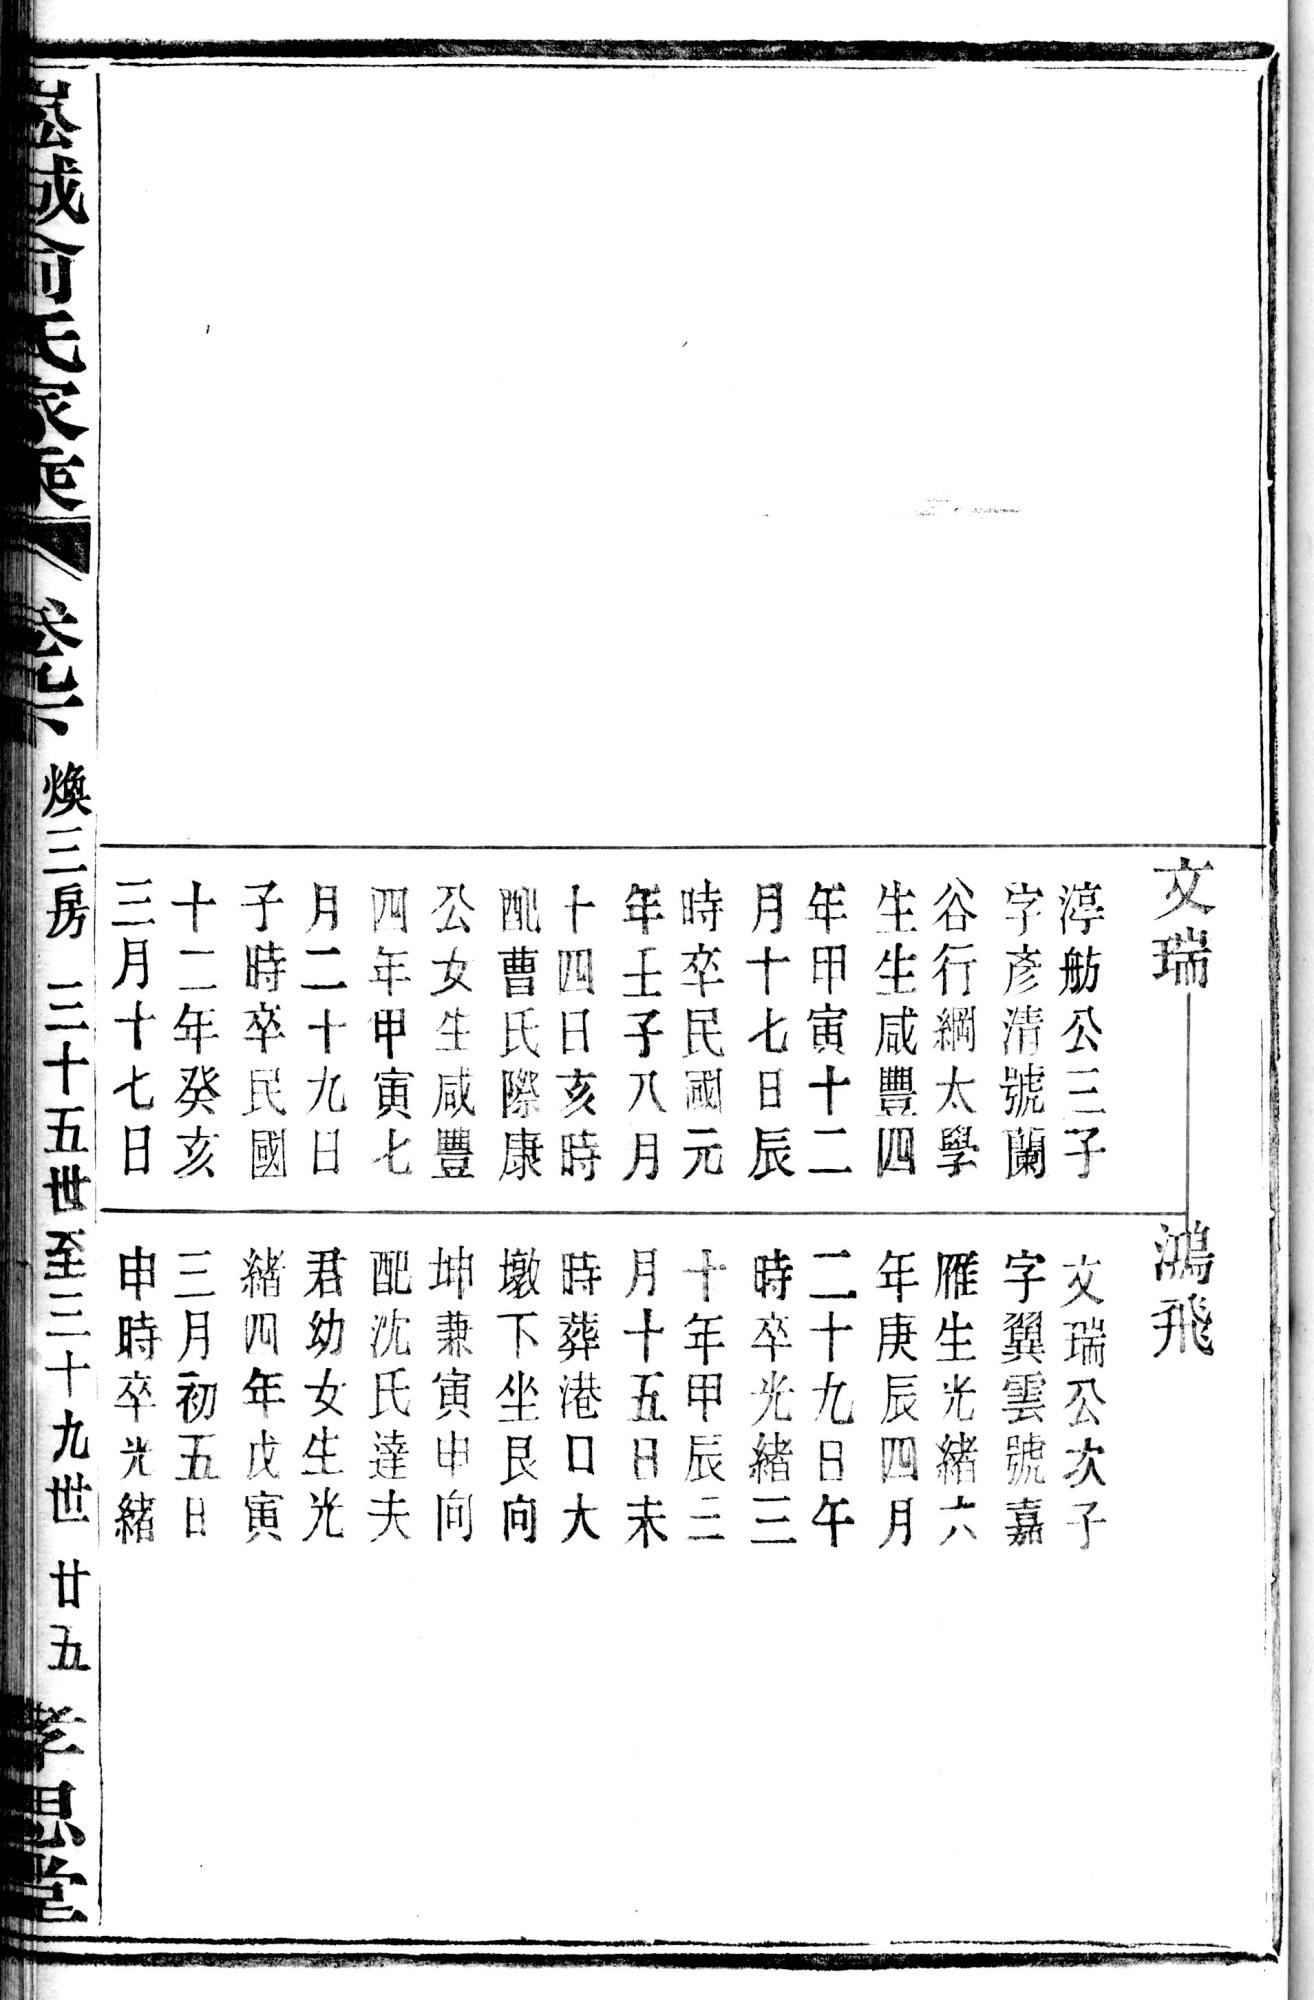 文瑞
淳舫公三子
字彥清號蘭
谷行綱太學
生生咸豐四
年甲寅十二
月十七日辰
時卒民國元
年壬子八月
十四日亥時
配曹氏際康
公女生咸豐
四年甲寅七
月二十九日
子時卒民國
十二年癸亥
三月十七日
鴻飛
文瑞公次子
字翼雲號嘉
雁生光緒六
年庚辰四月
二十九日午
時卒光緒三
十年甲辰三
月十五日未
時葬港口大
墩下坐艮向
坤兼寅申向
配沈氏達夫
君幼女生光
緒四年戊寅
三月初五日
申時卒光緒
城俞氏家乘
卷
煥三房
三十五世至三十九世
廿五
孝思堂